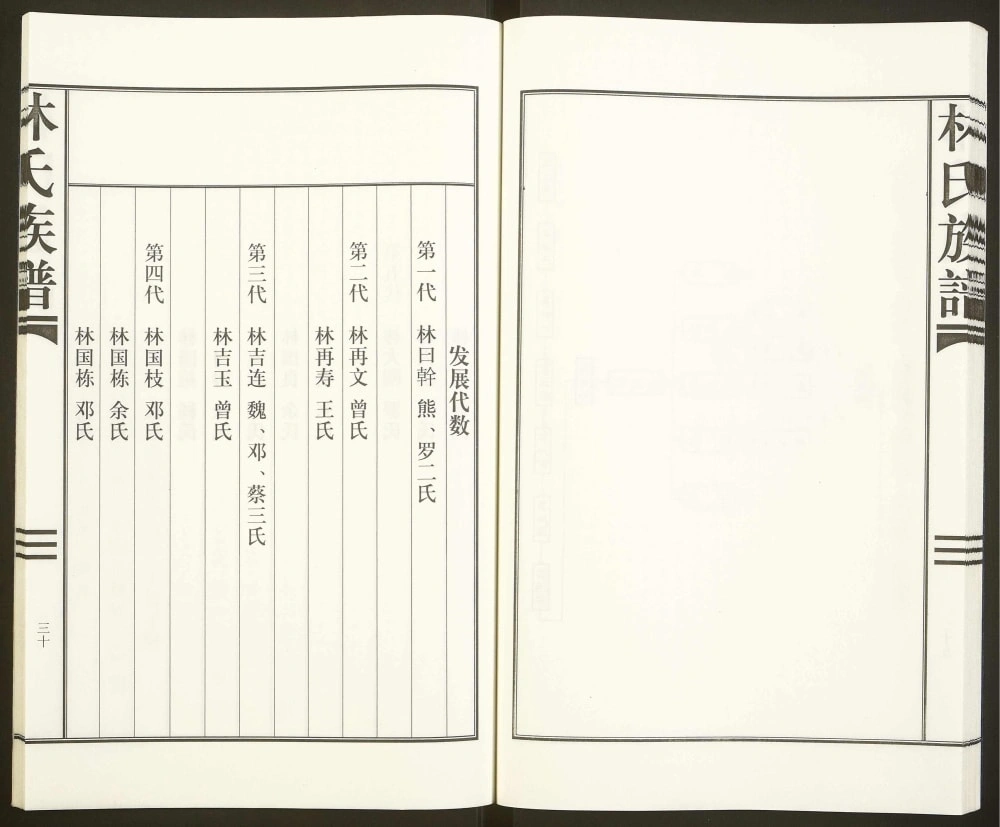 林氏族谱
发展代数
第一代 林曰幹 熊、罗二氏
第二代 林再文 曾氏
林再寿 王氏
第三代 林吉连 魏、邓、蔡三氏
林吉玉 曾氏
第四代 林国枝 邓氏
林国栋 余氏
林国栋 邓氏
林氏族谱
三十